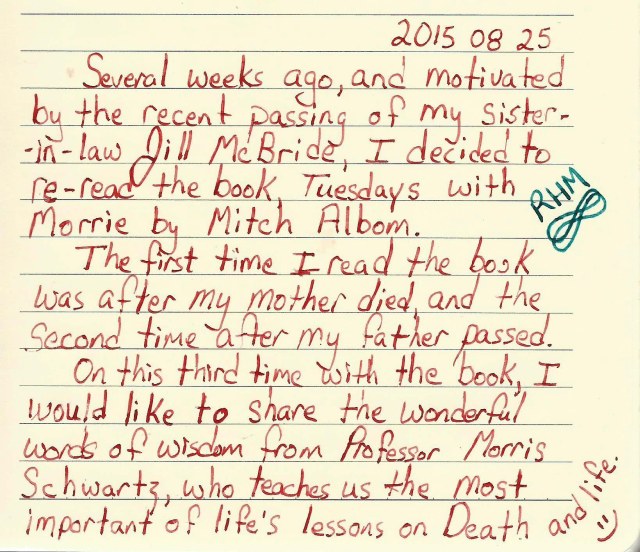 2015 08 25
Several weeks ago, and motivated
by the recent passing of my sister-
-in-law Jill McBride, I decided to
re-read the book, Tuesdays with
Morrie by Mitch Albom.
RHM
The first time I read the book
was after my mother died, and the
second time after my father passed.
On this third time with the book, I
would like to share the wonderful
words of wisdom from Professor Morris
Schwartz, who teaches us the most
important of life's lessons on Death and life. :)